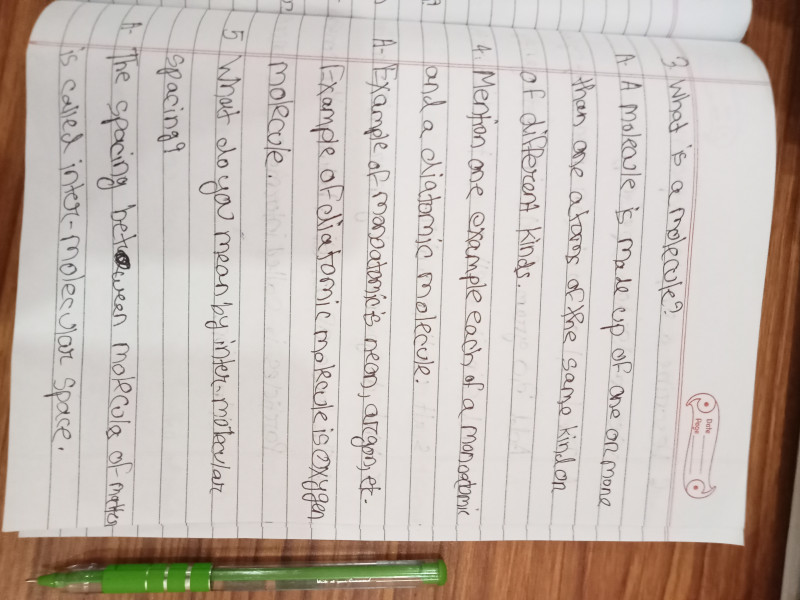 Date
Page
3 What is a molecule?
A. A molecule is made up of one or more
than one atoms of the same kind or
of different kinds.
4. Mention one example each of a monoatomic
and a diatomic molecule.
A- Example of monoatomic is neon, argon, et.
Example of diatomic molecule is oxygen
molecule.
5 What do you mean by inter-molecular
spacing?
A- The spacing between molecula of matter
is called inter-molecular space.